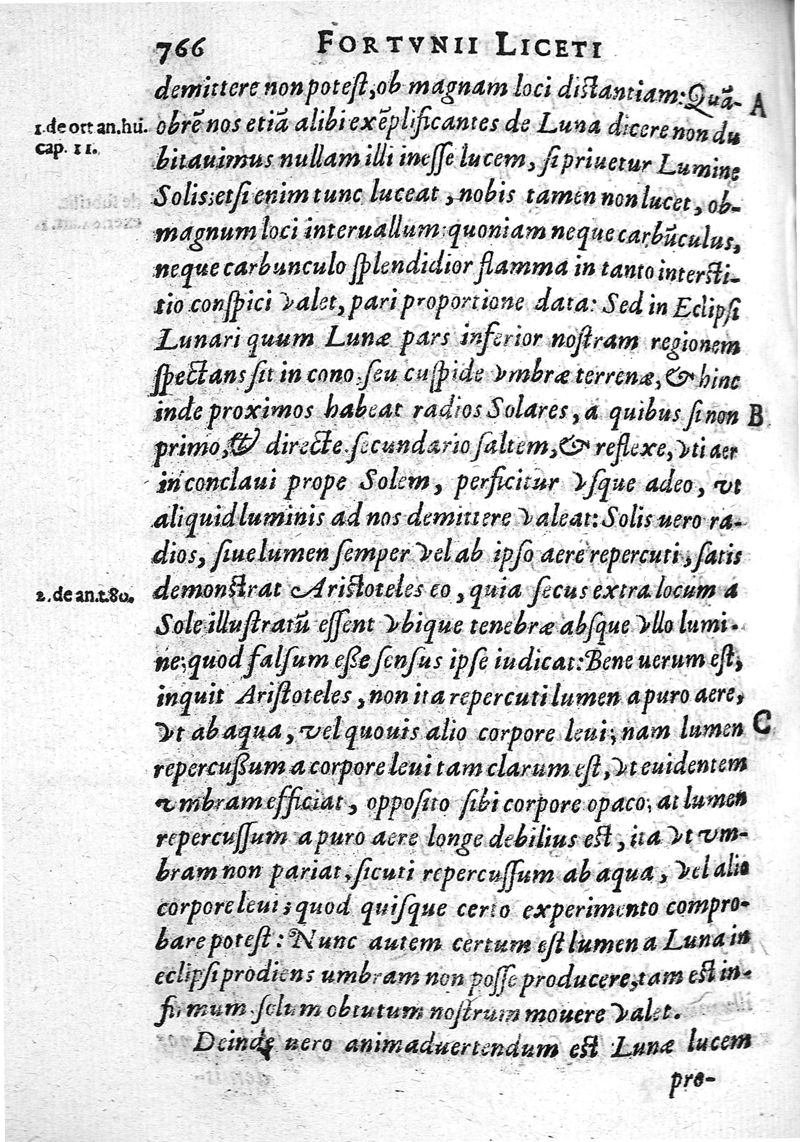 766 FORTVNII LICETI
demittere non potest, ob magnam loci distantiam: Quā- A
1. de ort an. hu. obrē nos etiā alibi exēplificantes de Luna dicere non du
cap. 11. bitauimus nullam illi inesse lucem, si priuetur Lumine
Solis; etsi enim tunc luceat, nobis tamen non lucet, ob-
magnum loci interuallum: quoniam neque carbūculus,
neque carbunculo splendidior flamma in tanto intersti-
tio conspici valet, pari proportione data: Sed in Eclipsi
Lunari quum Lunæ pars inferior nostram regionem
spectans sit in cono seu cuspide vmbræ terrenæ, & hinc
inde proximos habeat radios Solares, a quibus si non B
primo, & directe secundario saltem, & reflexe, vti aer
in conclaui prope Solem, perficitur vsque adeo, vt
aliquid luminis ad nos demittere valeat: Solis uero ra-
dios, siue lumen semper vel ab ipso aere repercuti, satis
2. de an. t. 80. demonstrat Aristoteles eo, quia secus extra locum a
Sole illustratū essent vbique tenebræ absque vllo lumi-
ne; quod falsum esse sensus ipse iudicat: Bene uerum est,
inquit Aristoteles, non ita repercuti lumen a puro aere,
vt ab aqua, vel quouis alio corpore leui; nam lumen C
repercussum a corpore leui tam clarum est, vt euidentem
vmbram efficiat, opposito sibi corpore opaco; at lumen
repercussum a puro aere longe debilius est, ita vt vm-
bram non pariat, sicuti repercussum ab aqua, vel alio
corpore leui; quod quisque certo experimento compro-
bare potest: Nunc autem certum est lumen a Luna in
eclipsi prodiens umbram non posse producere, tam est in-
firmum solum obtutum nostrum mouere valet.
Deinde uero animaduertendum est Lunæ lucem
pro-